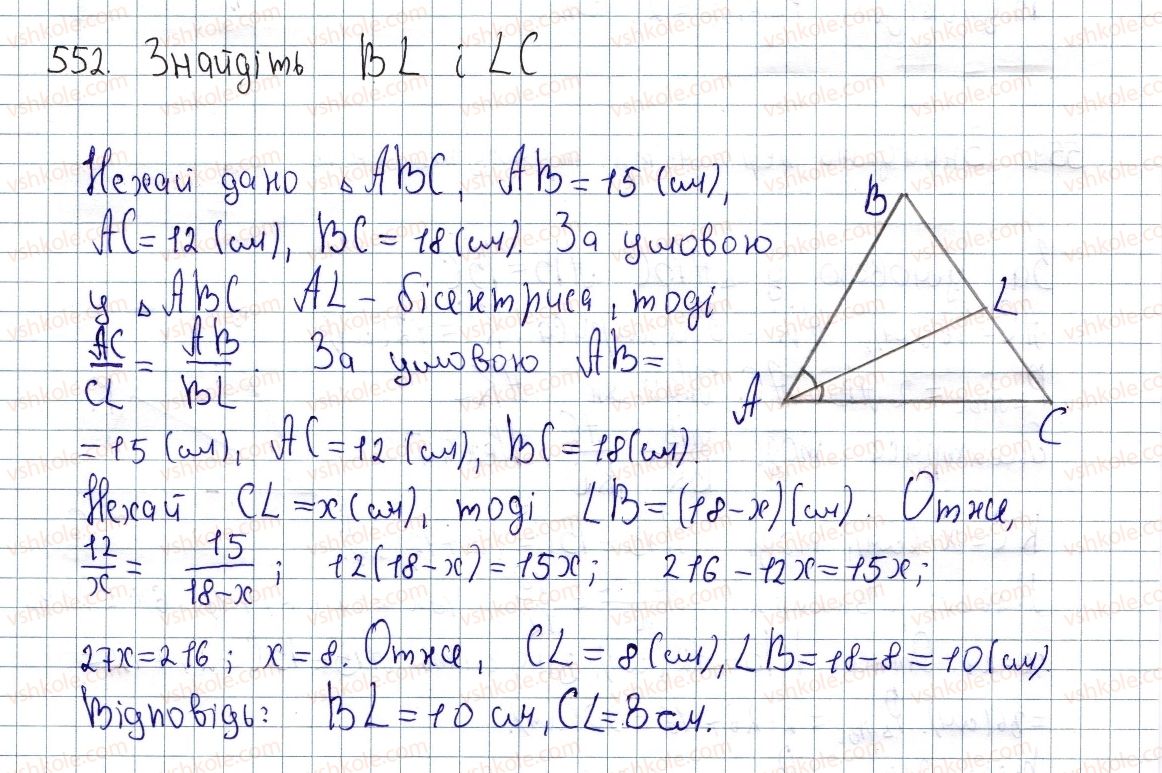 552. Знайдіть BL і LC
Нехай дано △ABC, AB = 15 (см),
AC = 12 (см), BC = 18 (см). За умовою
у △ABC AL – бісектриса, тоді
AC/CL = AB/BL. За умовою AB =
= 15 (см), AC = 12 (см), BC = 18 (см).
Нехай CL = x (см), тоді LB = (18 – x) (см). Отже,
12/x = 15/(18-x); 12(18-x) = 15x; 216 – 12x = 15x;
27x = 216; x = 8. Отже, CL = 8 (см), LB = 18-8 = 10 (см)
Відповідь: BL = 10 см, CL = 8 см.
B
L
A
C
vshkole.com